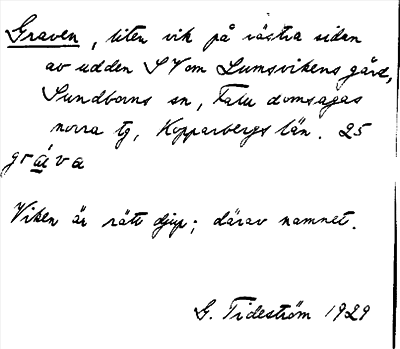 Graven, liten vik på västra sidan
av udden SV om Lumsvikens gård,
Sundborns sn, Falu domsagas
norra tg, Kopparbergs län. 25
gráva
Viken är rätt djup; därav namnet.
G. Tideström 1929